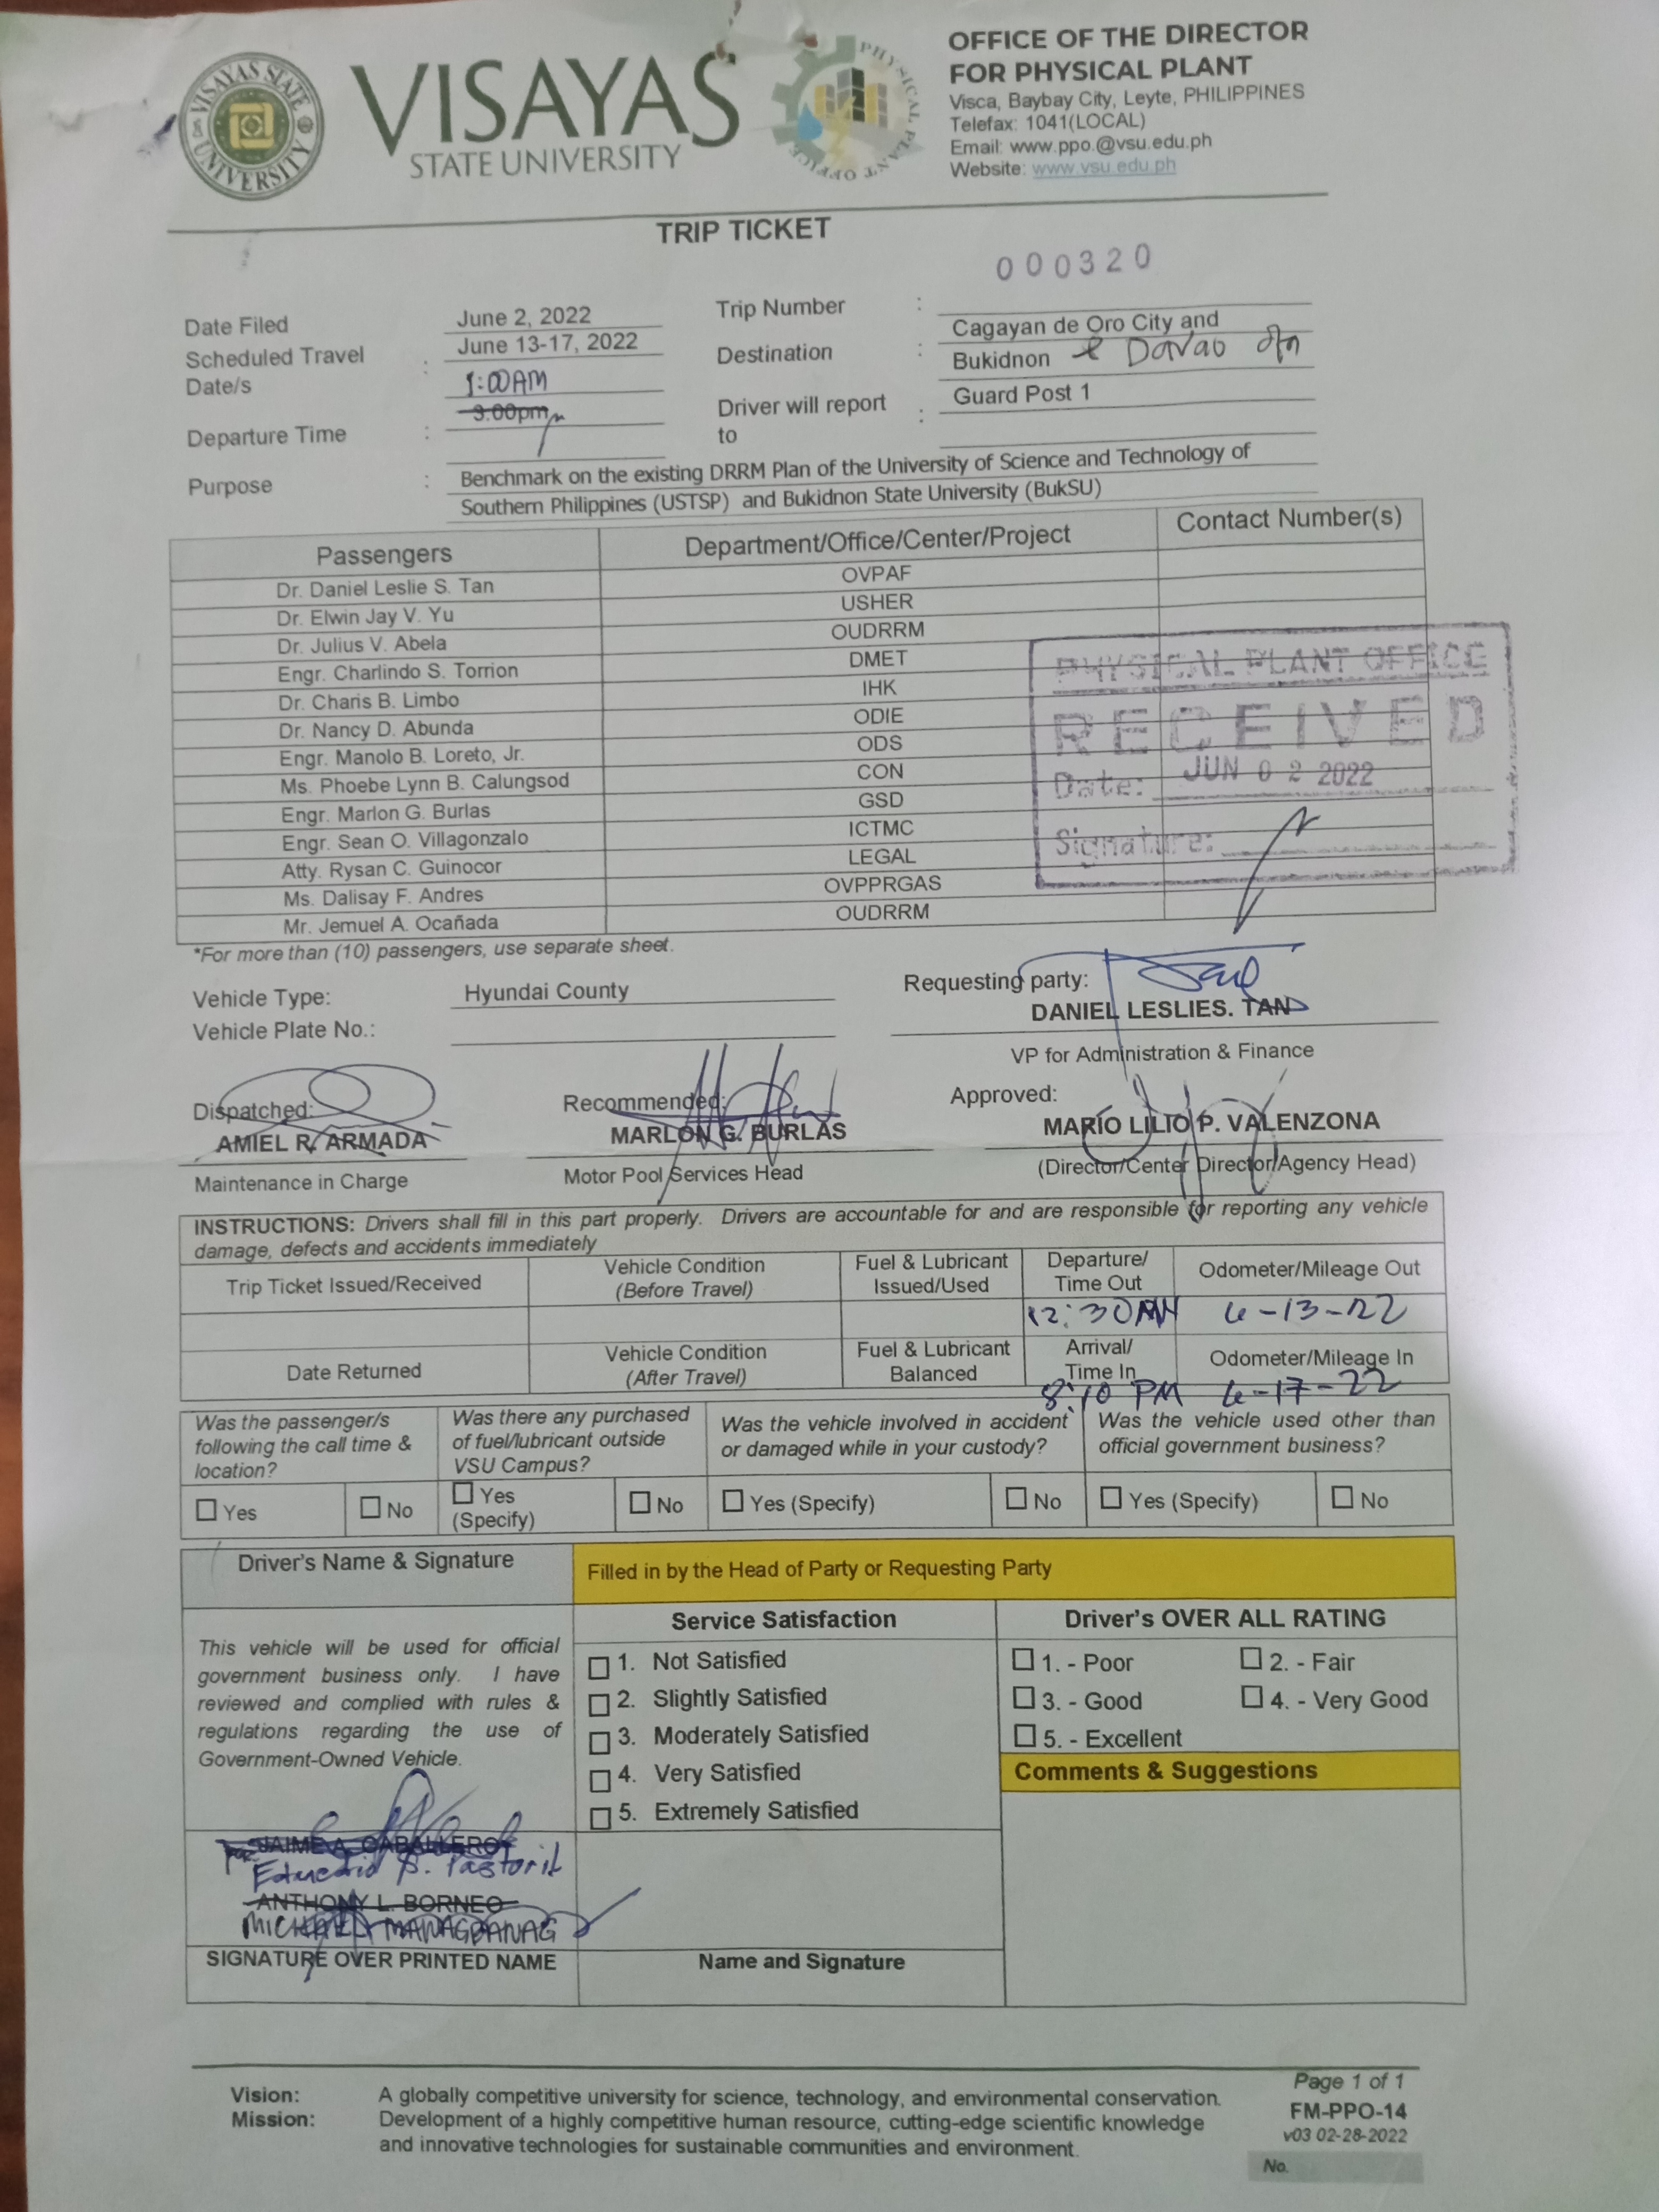 VISAYAS STATE UNIVERSITY
VISAYAS
STATE UNIVERSITY
PHYSICAL PLANT OFFICE
OFFICE OF THE DIRECTOR
FOR PHYSICAL PLANT
Visca, Baybay City, Leyte, PHILIPPINES
Telefax: 1041(LOCAL)
Email: www.ppo.@vsu.edu.ph
Website: www.vsu.edu.ph
TRIP TICKET
000320
Date Filed June 2, 2022
Scheduled Travel Date/s : June 13-17, 2022
1:00AM
Departure Time : 3:00pm
Trip Number :
Destination : Cagayan de Oro City and
Bukidnon & Davao
Driver will report to : Guard Post 1
Purpose : Benchmark on the existing DRRM Plan of the University of Science and Technology of
Southern Philippines (USTSP) and Bukidnon State University (BukSU)
Passengers Department/Office/Center/Project Contact Number(s)
Dr. Daniel Leslie S. Tan OVPAF
Dr. Elwin Jay V. Yu USHER
Dr. Julius V. Abela OUDRRM
Engr. Charlindo S. Torrion DMET
Dr. Charis B. Limbo IHK
Dr. Nancy D. Abunda ODIE
Engr. Manolo B. Loreto, Jr. ODS
Ms. Phoebe Lynn B. Calungsod CON
Engr. Marlon G. Burlas GSD
Engr. Sean O. Villagonzalo ICTMC
Atty. Rysan C. Guinocor LEGAL
Ms. Dalisay F. Andres OVPPRGAS
Mr. Jemuel A. Ocañada OUDRRM
PHYSICAL PLANT OFFICE
RECEIVED
Date: JUN 02 2022
Signature:
*For more than (10) passengers, use separate sheet.
Vehicle Type: Hyundai County
Vehicle Plate No.:
Requesting party:
DANIEL LESLIES. TAN
VP for Administration & Finance
Dispatched:
AMIEL R. ARMADA
Maintenance in Charge
Recommended:
MARLON G. BURLAS
Motor Pool Services Head
Approved:
MARIO LILIO P. VALENZONA
(Director/Center Director/Agency Head)
INSTRUCTIONS: Drivers shall fill in this part properly. Drivers are accountable for and are responsible for reporting any vehicle
damage, defects and accidents immediately
Trip Ticket Issued/Received
Vehicle Condition
(Before Travel)
Fuel & Lubricant
Issued/Used
Departure/
Time Out
Odometer/Mileage Out
12:30AM 6-13-22
Date Returned
Vehicle Condition
(After Travel)
Fuel & Lubricant
Balanced
Arrival/
Time In
Odometer/Mileage In
8:10 PM 6-17-22
Was the passenger/s
following the call time &
location?
Was there any purchased
of fuel/lubricant outside
VSU Campus?
Was the vehicle involved in accident
or damaged while in your custody?
Was the vehicle used other than
official government business?
Yes
No
Yes
(Specify)
No
Yes (Specify)
No
Yes (Specify)
No
Driver's Name & Signature
Filled in by the Head of Party or Requesting Party
This vehicle will be used for official
government business only. I have
reviewed and complied with rules &
regulations regarding the use of
Government-Owned Vehicle.
Service Satisfaction
1. Not Satisfied
2. Slightly Satisfied
3. Moderately Satisfied
4. Very Satisfied
5. Extremely Satisfied
Driver's OVER ALL RATING
1. - Poor
2. - Fair
3. - Good
4. - Very Good
5. - Excellent
Comments & Suggestions
JAIME A. CABALLERO
Pastoril
ANTHONY L. BORNEO
MICHAEL MANAGBANAG
SIGNATURE OVER PRINTED NAME
Name and Signature
Vision: A globally competitive university for science, technology, and environmental conservation.
Mission: Development of a highly competitive human resource, cutting-edge scientific knowledge
and innovative technologies for sustainable communities and environment.
Page 1 of 1
FM-PPO-14
v03 02-28-2022
No.